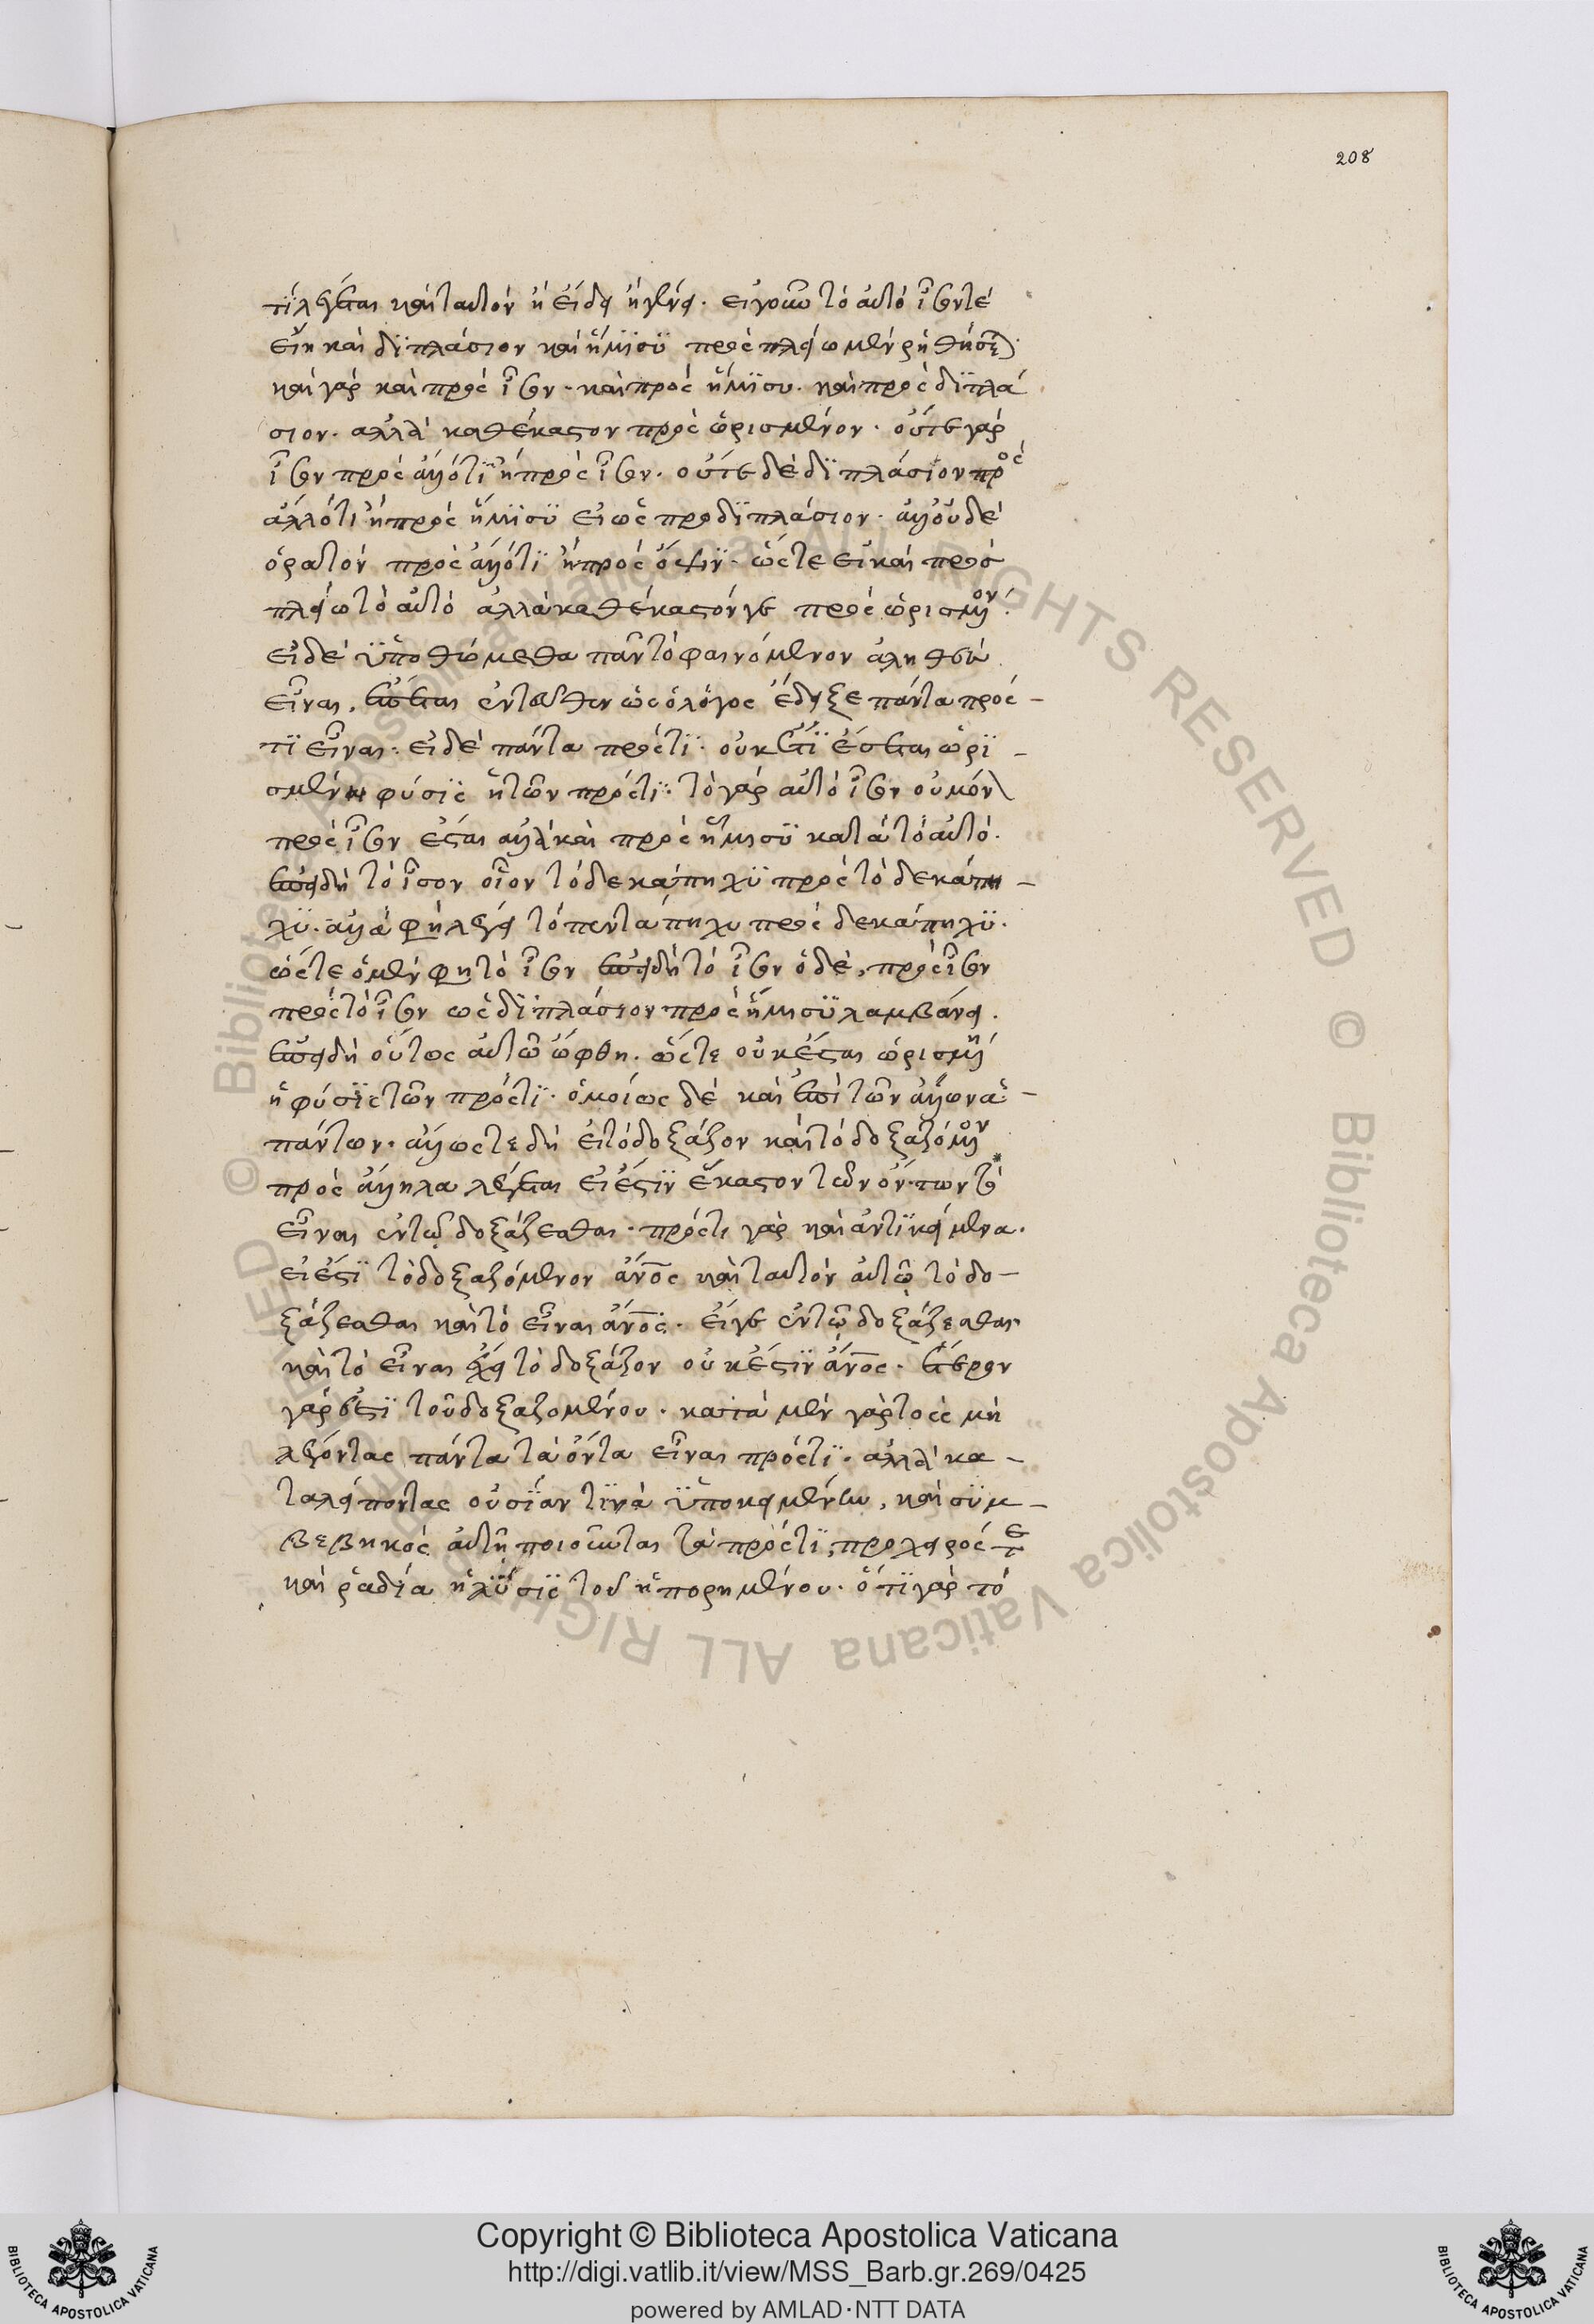 208
τί λέγεται καὶ ταυτὸν ἢ εἴδει ἢ γένει. εἰ γοῦν τὸ αὐτὸ ἴσον τὲ
εἴη καὶ διπλάσιον καὶ ἥμισυ πρὸς πλείω μὲν ῥηθήσεται.
καὶ γὰρ καὶ πρὸς ἴσον. καὶ πρὸς ἥμισυ. καὶ πρὸς διπλά
σιον. ἀλλὰ καθέκαστον πρὸς ὡρισμένον. οὔτε γὰρ
ἴσον πρὸς ἄλλό τι ἢ πρὸς ἴσον. οὔτε δὲ διπλάσιον πρὸς
ἄλλό τι ἢ πρὸς ἥμισυ εἰ ὡς προδιπλάσιον. ἀλλ' οὐδὲ
ὁρατὸν πρὸς ἄλλό τι ἢ πρὸς ὄψιν. ὥστε εἰ καὶ πρὸσ
πλείω τὸ αὐτὸ ἀλλὰ καθέκαστόν γε πρὸς ὡρισμένον.
εἰ δὲ ὑποθώμεθα πᾶν τὸ φαινόμενον ἀληθὲς
εἶναι. ἕπεται ἐντεῦθεν ὡς ὁ λόγος ἔδειξε πάντα πρός-
τι εἶναι. εἰ δὲ πάντα πρός τι. οὐκ ἔτι ἔσται ὡρι-
σμένη φύσις ἡ τῶν πρός τι. τὸ γὰρ αὐτὸ ἴσον οὐ μόνον
πρὸς ἴσον ἔσται ἀλλὰ καὶ πρὸς ἥμισυ κατὰ τὸ αὐτό.
ἐπειδὴ τὸ ἴσον οἷον τὸ δεκάπηχυ πρὸς τὸ δεκάπη-
χυ. ἀλλὰ φη λέγει τὸ πεντάπηχυ πρὸς δεκάπηχυ.
ὥστε ὁ μὲν φη τὸ ἴσον ἐπειδὴ τὸ ἴσον ὁ δὲ, πρὸς ἴσον
πρὸς τὸ ἴσον ὡς διπλάσιον πρὸς ἥμισυ λαμβάνει.
ἐπειδὴ οὕτως αὐτῶ ὤφθη. ὥστε οὐκ ἔσται ὡρισμένη
ἡ φύσις τῶν πρός τι. ὁμοίως δὲ καὶ ἐπὶ τῶν ἄλλων ἁ-
πάντων. ἄλλως τε δὴ εἰ τὸ δοξάζον καὶ τὸ δοξαζόμενον
πρὸς ἄλληλα λέγεται εἰ ἔστιν ἕκαστον τῶν ὄντων τὸ
εἶναι ἐν τῷ δοξάζεσθαι. πρός τι γὰρ καὶ ἀντικείμενα.
εἰ ἔστι τὸ δοξαζόμενον ἄνος καὶ ταυτὸν αὐτῷ τὸ δο-
ξάζεσθαι καὶ τὸ εἶναι ἄνος. εἴγε ἐν τῷ δοξάζεσθαι
καὶ τὸ εἶναι ἔχει τὸ δοξάζον οὐκ ἔστιν ἄνος. ἕτερον
γὰρ ἐστι τοῦ δοξαζομένου. κατὰ μὲν γὰρ τοὺς μὴ
λέγοντας πάντα τὰ ὄντα εἶναι πρός τι. ἀλλὰ κα-
ταλείποντας οὐσίαν τινὰ ὑποκειμένην, καὶ συμ-
βεβηκὸς αὐτῆ ποιοῦντας τὰ πρός τι, πρόχειρός τε
καὶ ῥαδία ἡ λύσις τοῦ ἠπορημένου. ὅτι γὰρ τὸ
Copyright © Biblioteca Apostolica Vaticana
http://digi.vatlib.it/view/MSS_Barb.gr.269/0425
powered by AMLAD·NTT DATA